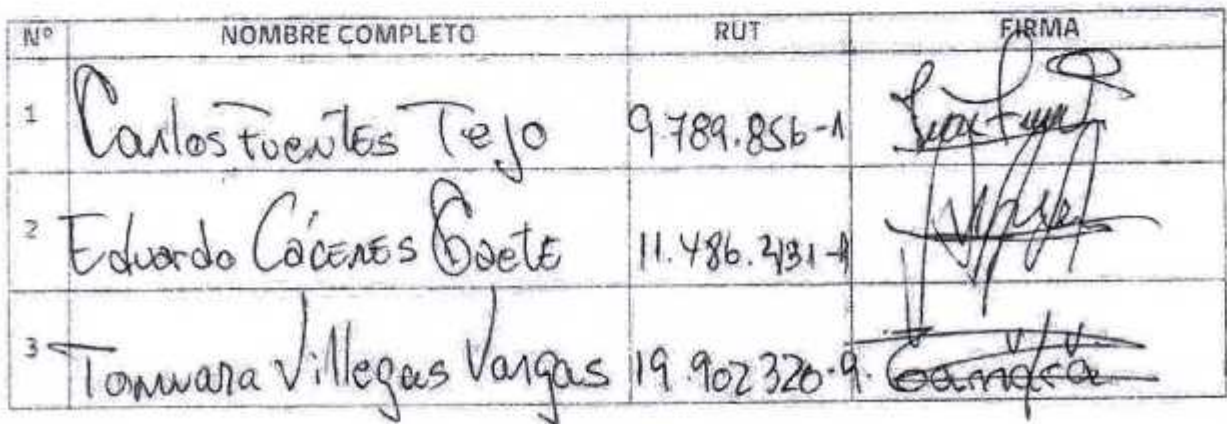 Nº NOMBRE COMPLETO RUT FIRMA
1 Carlos Fuentes Tejo 9.789.856-1
2 Eduardo Cáceres Gaete 11.486.431-1
3 Villegas Vargas 19.902320-9.